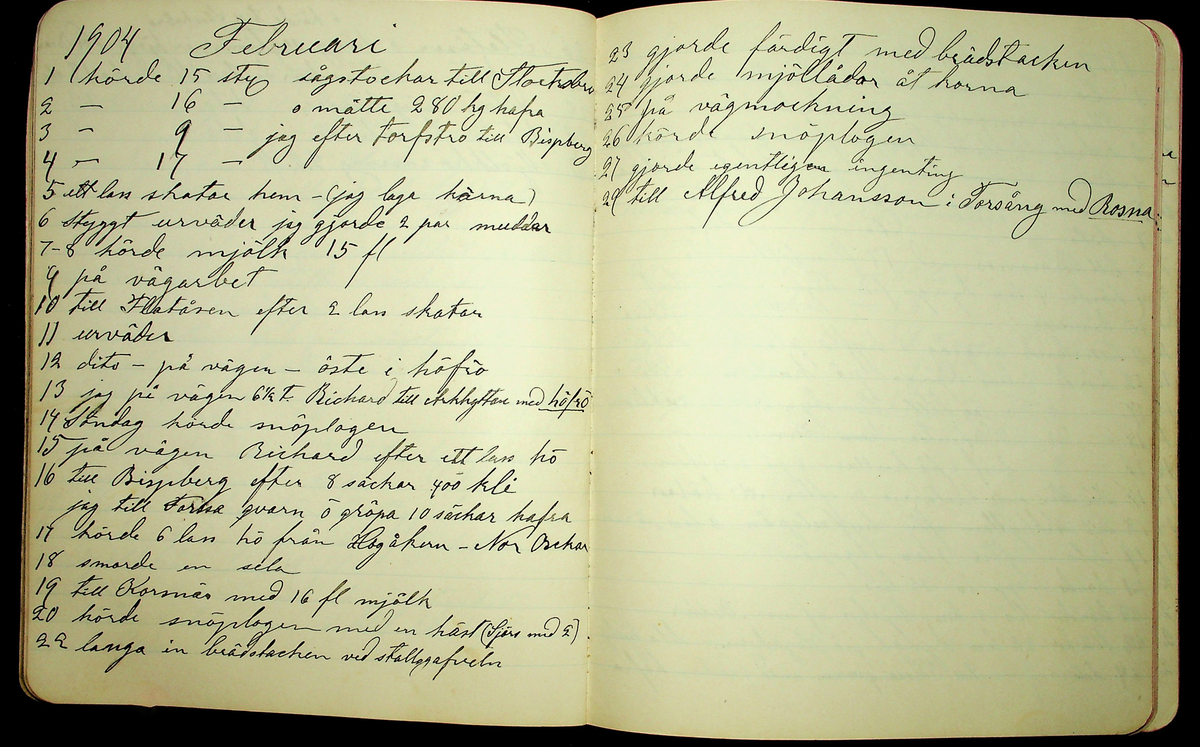 1904 Februari
1 körde 15 sty sågstockar till Stocksbro
2 — 16 — o mätte 280 kg hafra
3 — 9 — jag efter torfströ till Bispberg
4 — 17 —
5 ett lass skatar hem - (jag laga kärna)
6 styggt urväder jag gjorde 2 par meddar
7-8 körde mjölk 15 fl
9 på vägarbet
10 till Flatåsen efter 2 lass skatar
11 urväder
12 dito - på vägen - öste i höfrö
13 jag på vägen 6½ t. Richard till Arkhyttan med höfrö
14 Söndag körde snöplogen
15 på vägen Richard efter ett lass hö
16 till Bispberg efter 8 säckar 400 kli
jag till Torsa qvarn o gröpa 10 säckar hafra
17 körde 6 lass hö från Hogåkern - Nor Backar
18 smorde en sela
19 till Korsnäs med 16 fl mjölk
20 körde snöplogen med en häst (Sjörs med 2)
22 langa in brädstacken ved stallggafveln
23 gjorde färdigt med brädstacken
24 gjorde mjöllådor åt korna
25 på vägmockning
26 körde snöplogen
27 gjorde egentligen ingenting
29 till Alfred Johansson i Torsång med Rosna